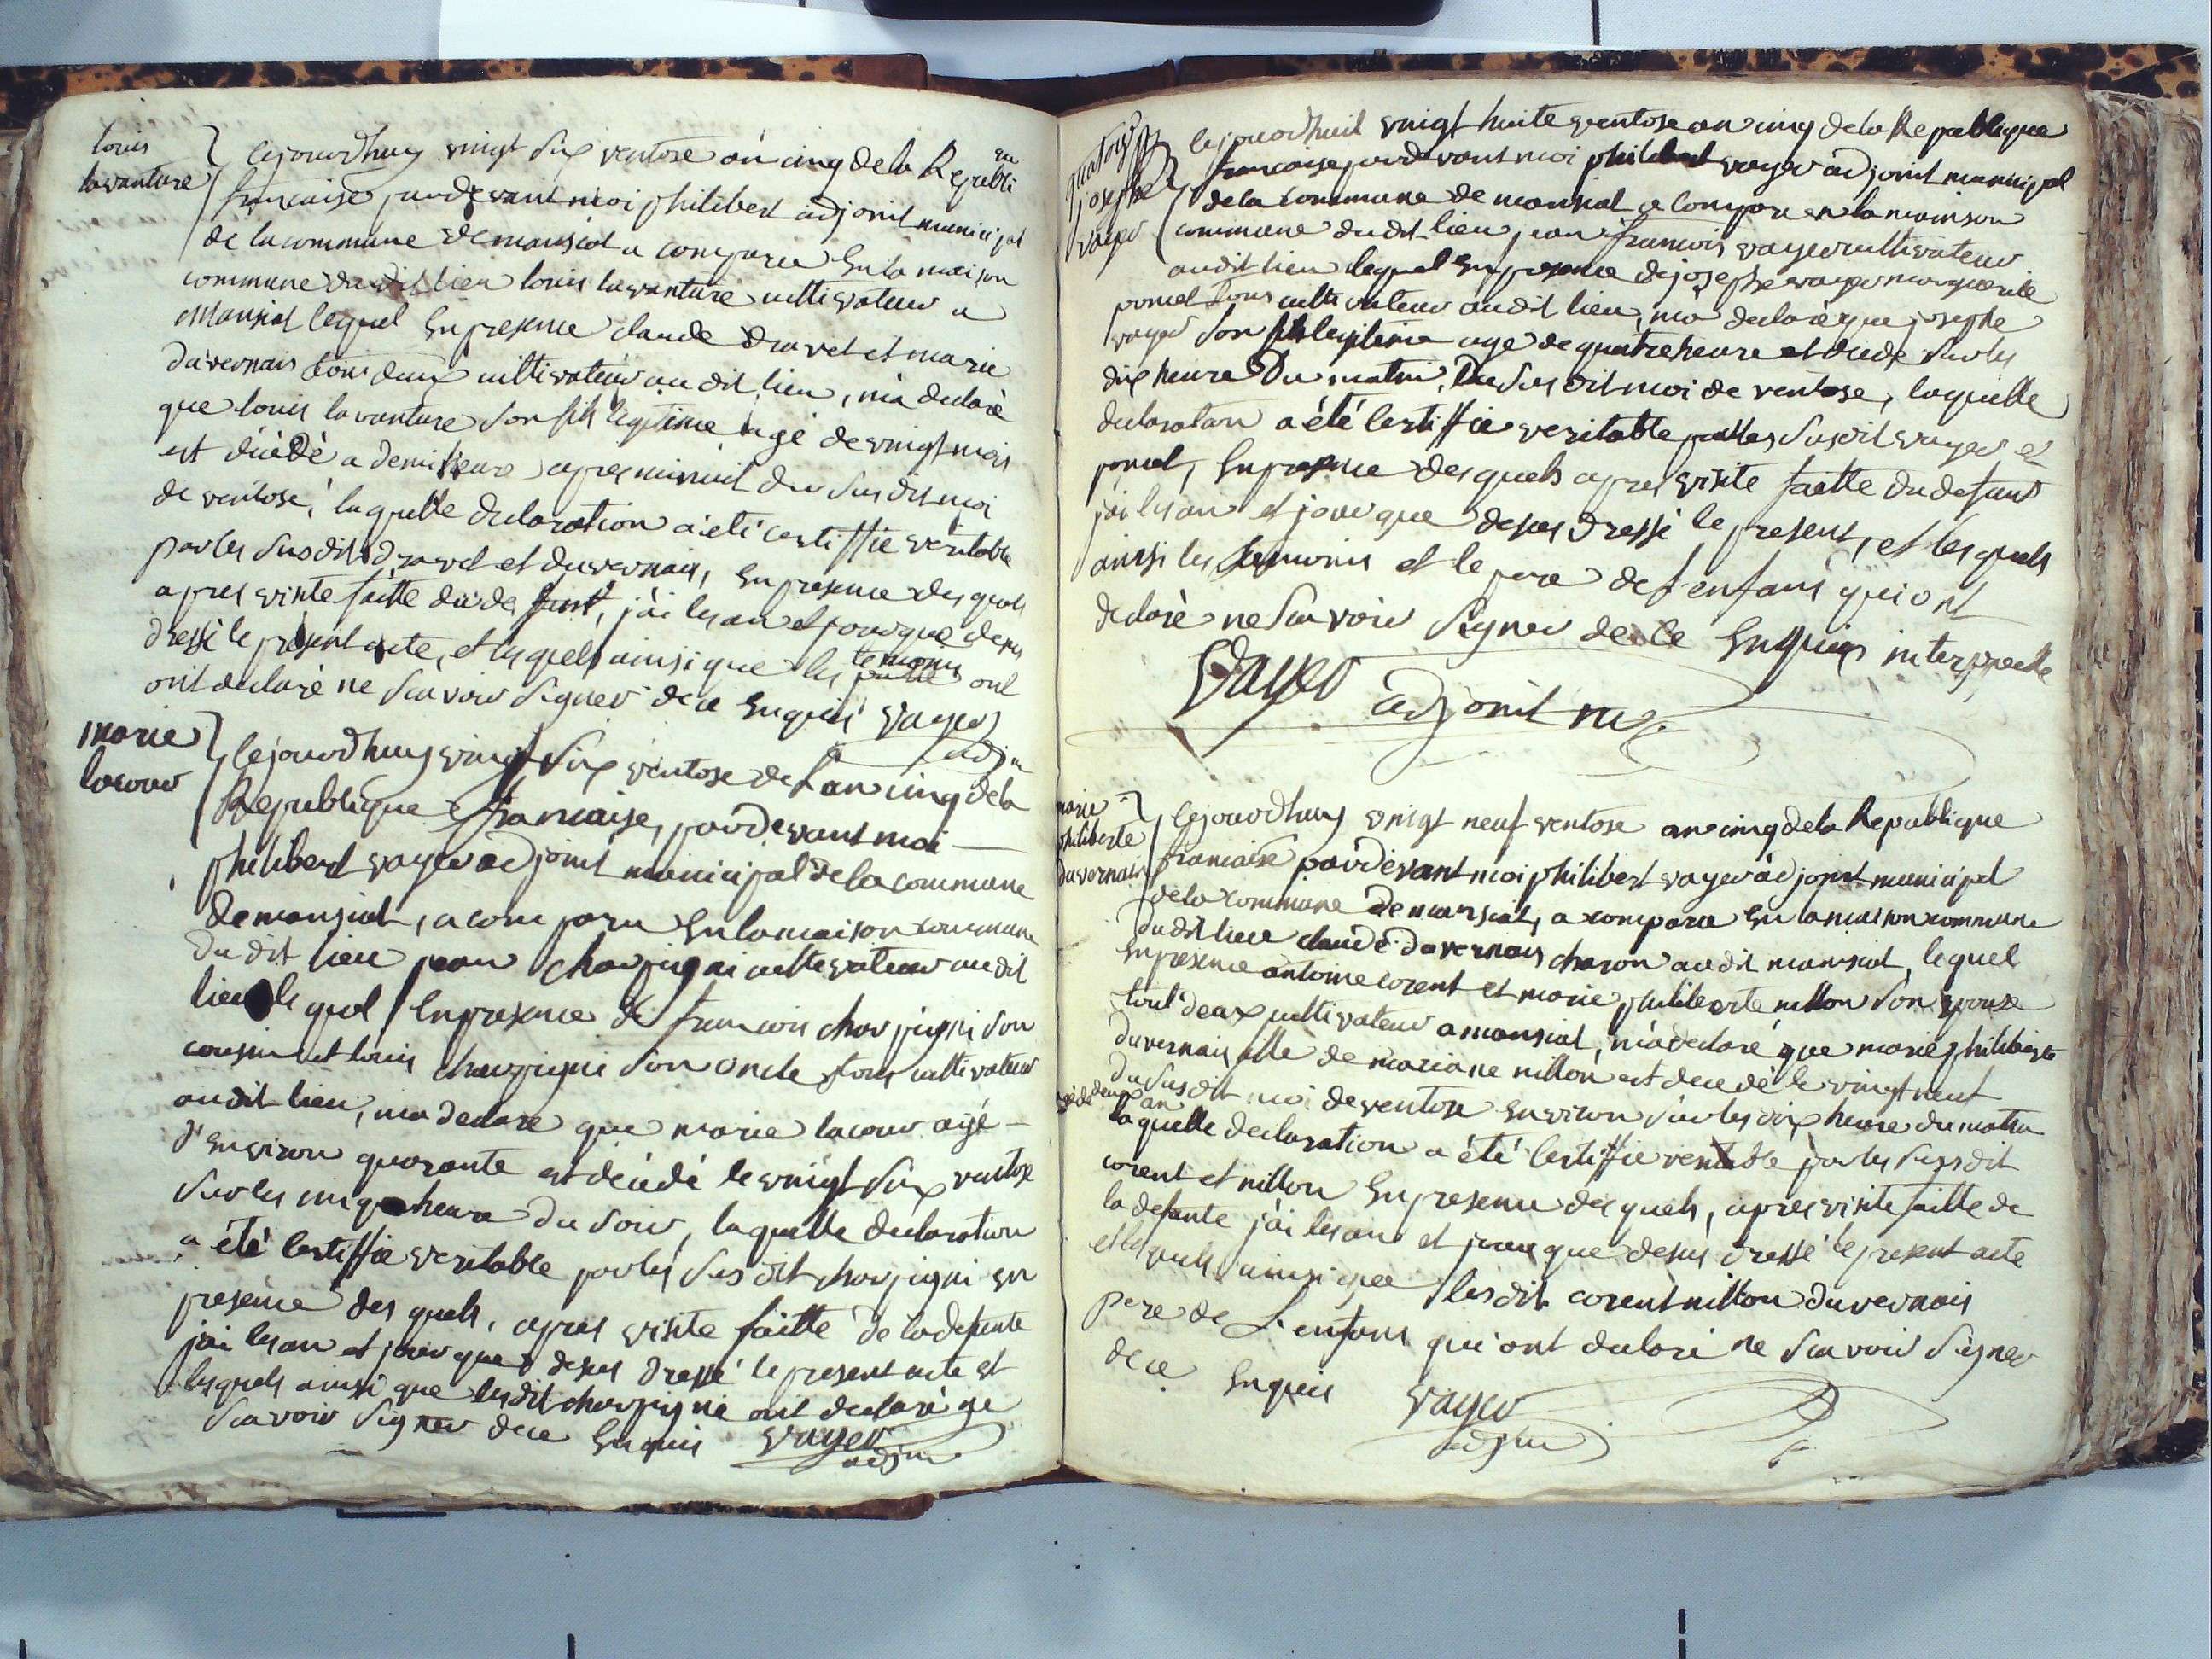 louis
lavanture
cejourdhuy vingt six ventose an cinq de la Republi
que
francaise pardevant moi philibert adjoint municipal
de la commune de mansiat a comparu En la maison
commune du dit lieu louis lavanture cultivateur a
Mansiat lequel En presence claude dravet et marie
duvernais tous deux cultivateur au dit lieu, m'a declaré
que louis lavanture son fils legitime agé de vingt mois
est décédé a demi heure apres minuit du susdit moi
de ventose, laquelle declaration a été certiffié veritable
par les susdits dravet et duvernais, En presence des quels
apres visite faitte du defunt, j'ai les an et jour que desus
dressé le present acte, et lesquels ainsi que les temoins ont
ont declaré ne savoir signer de ce Enquis vayer
adjm
marie
lacour
Cejourdhuy vingt six ventose de L'an cinq de la
Republique francaise, pardevant moi
philibert vayer adjoint municipal de la commune
de mansiat, a comparu En la maison commune
du dit lieu jean charpigni cultivateur au dit
lieu le quel En presence de francois charpigni son
cousin et louis charpigni son oncle tous cultivateur
au dit lieu, ma declaré que marie lacour agé
d'Environ quarante est décédé le vingt six ventose
sur les cinq heure du soir, laquelle declaration
a été certiffié veritable par les susdit charpigni en
presence des quels, apres visite faitte de la defunte
j'ai les an et jour que desus dressé le present acte et
lesquels ainsi que lesdit charpigni ont declaré ne
savoir signer de ce Enquis vayer
adjm
josephe
vayer
cejourdhuit vingt huite ventose an cinq de la Republique
francaise pardevant moi philibert vayer adjoint municipal
de la commune de mansiat a comparu en la mainson
commune du dit lieu jean francois vayer cultivateur
au dit lieu lequel En presence de josephe vayer marguerite
poncet tous cultivateur au dit lieu, m'a declaré que josephe
vayer son fils legitime agé de quatre heure est decedé sur les
dix heure du matin, du susdit moi de ventose, laquelle
declaration a été certiffié veritable par les susdit vayer et
poncet, En presence des quels apres visite faitte du defunt
j'ai les an et jour que desus dressé le present, et les quels
ainsi les temoins et le pere de l'enfant qui ont
declaré ne savoir signer de ce Enquis interppellé
Vayer adjoint m
marie
philiberte
duvernais
Cejourdhuy vingt neuf ventose an cinq de la Republique
francaise pardevant moi philibert vayer adjoint municipal
de la commune de mansiat, a comparu En la maison commune
du dit lieu claude duvernais charon au dit mansiat, lequel
En presence antoine corent et marie philiberte nillon son epouse
tout deux cultivateur a mansiat, m'a declaré que marie philiberte
duvernais fille de mariane nillon est decedé le vingt neuf
agé de deux an
du susdit moi de ventose environ sur les dix heure du matin
laquelle declaration a été certiffié veritable par les susdit
corent et nillon En presence des quels, apres visite faitte de
la defunte j'ai les an et jour que desus dressé le present acte
et lesquels ainsi que lesdit corent nillon duvernais
pere de L'enfant qui ont declaré ne savoir signer
de ce Enquis vayer
adjm